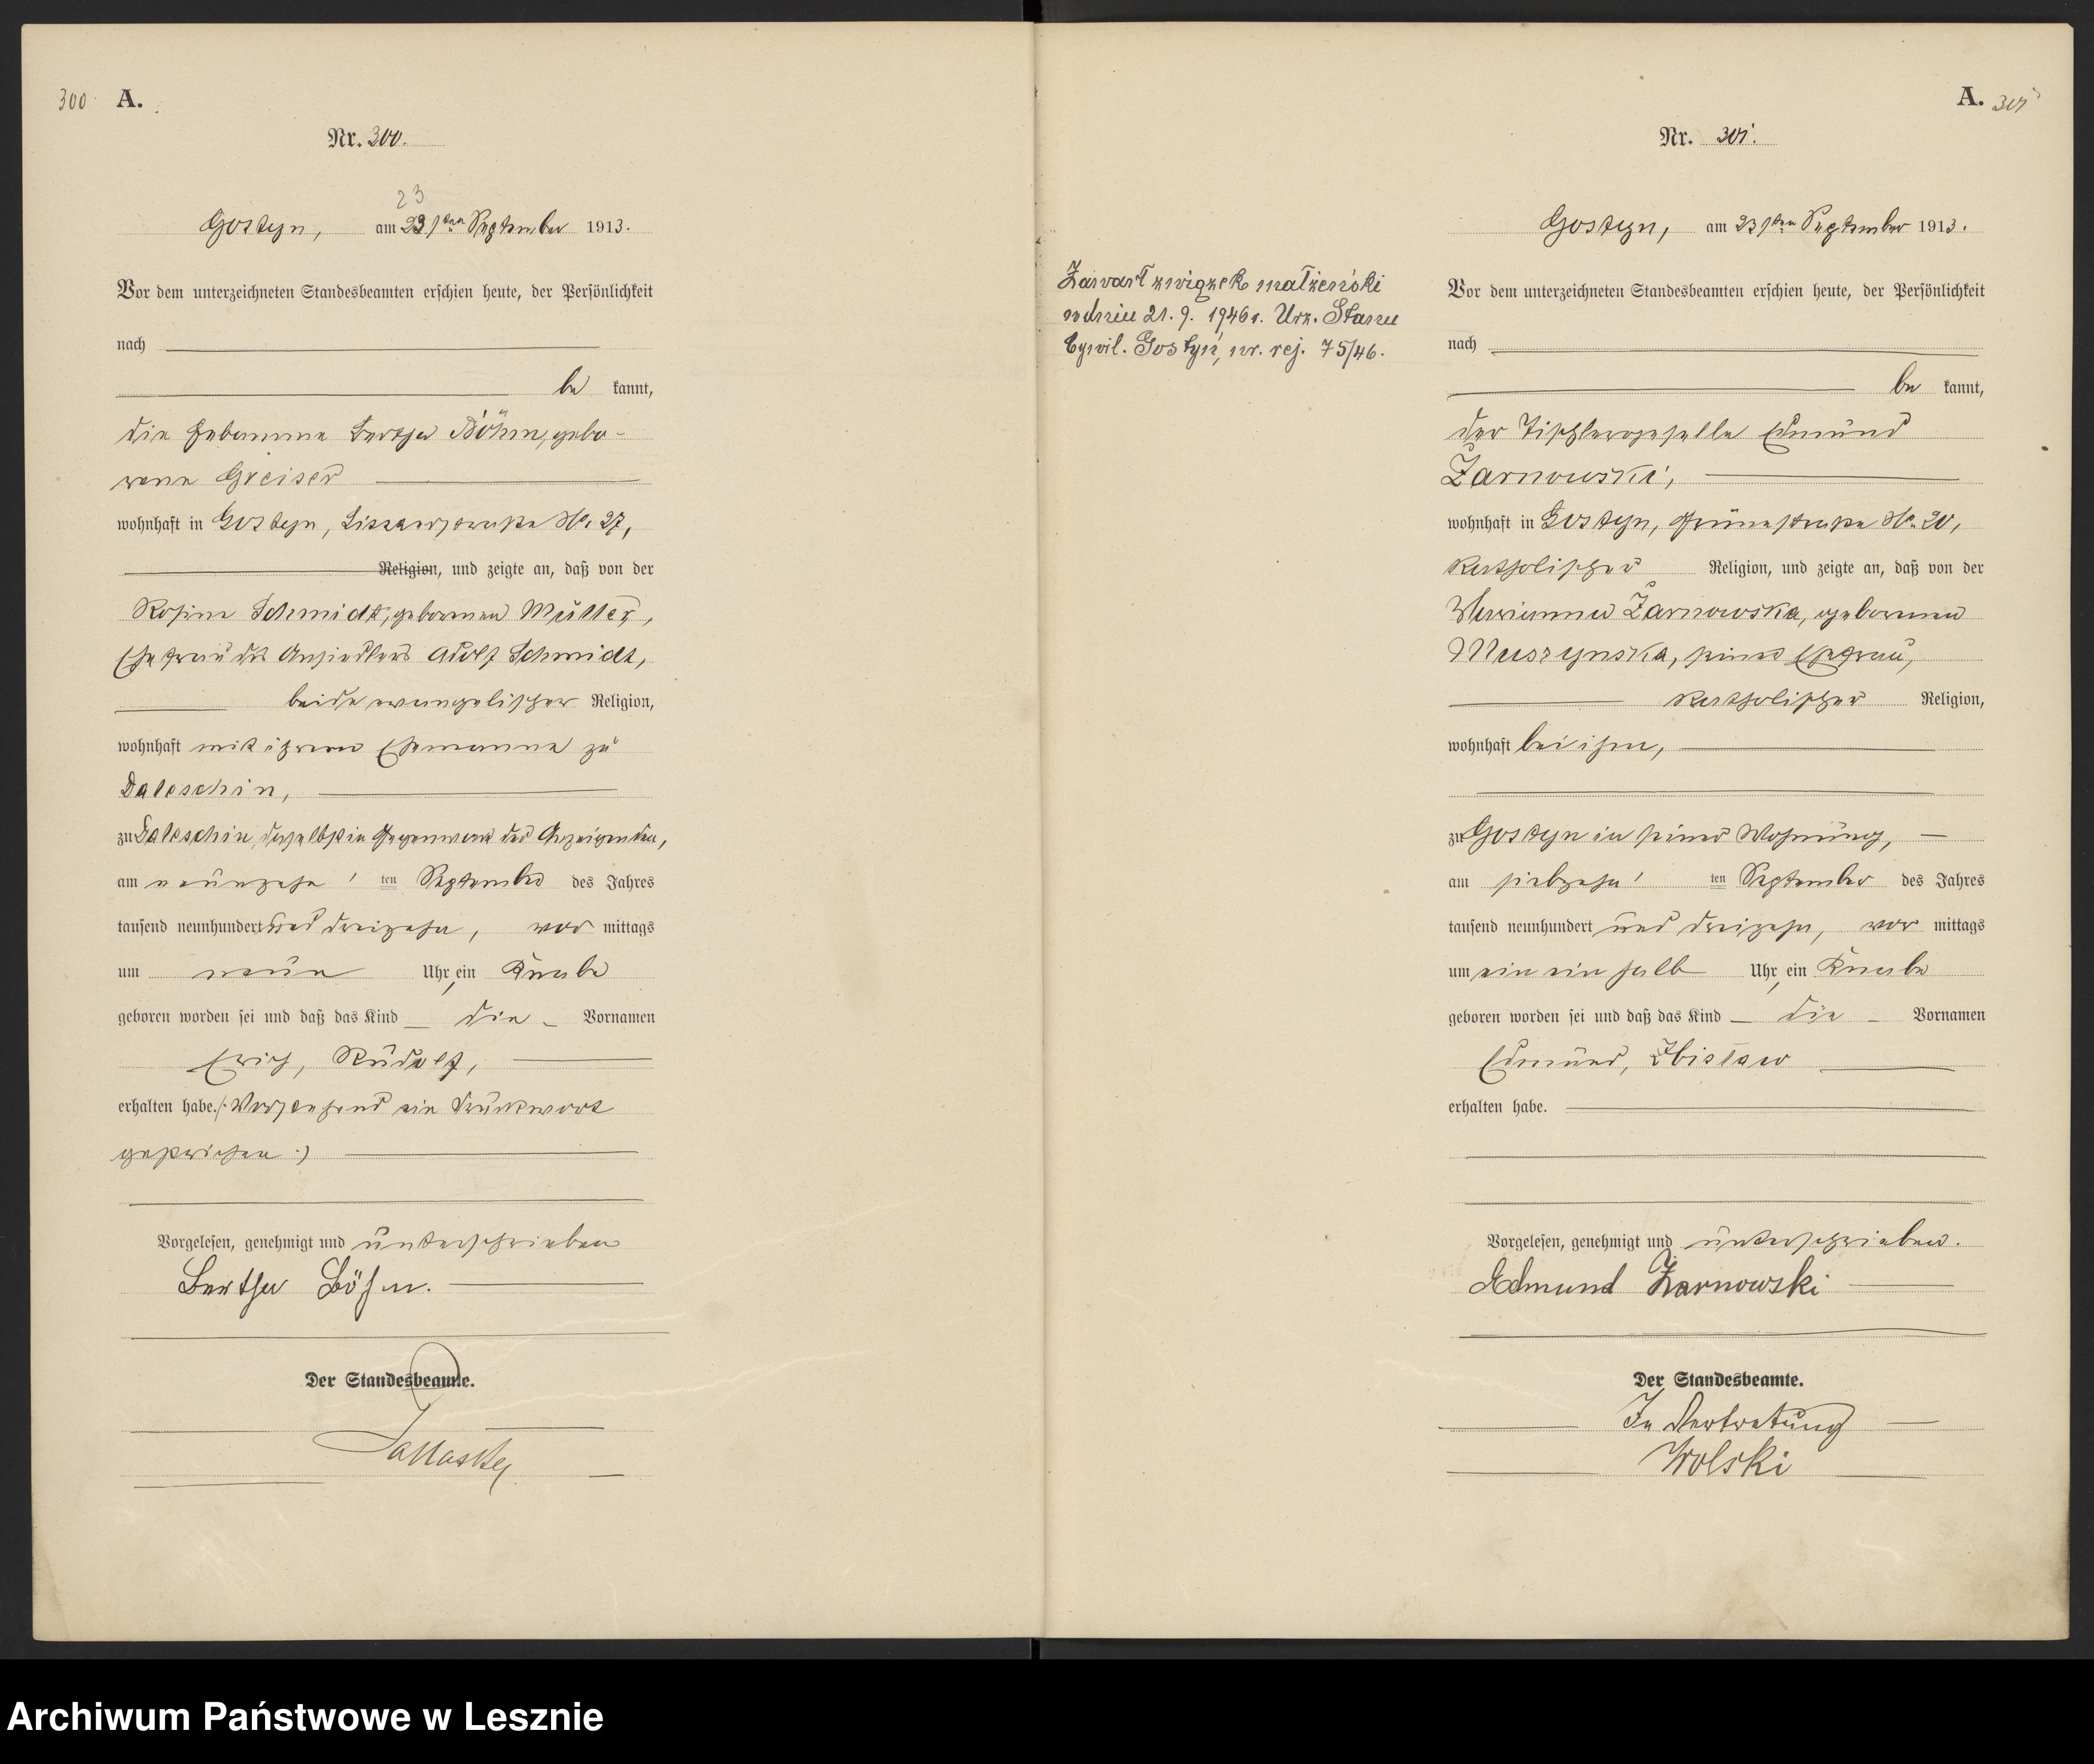 300 A.
Nr. 300.
23
Gostyn, am 23ten September 1913.
Vor dem unterzeichneten Standesbeamten erschien heute, der Persönlichkeit
nach
be kannt,
die Hebamme Bertha Böhm, gebo-
rene Greiser
wohnhaft in Gostyn, Lissaerstraße No. 27,
Religion, und zeigte an, daß von der
Rosina Schmidt, geborenen Müller,
Ehefrau des Ansiedlers Adolf Schmidt,
beide evangelischer Religion,
wohnhaft mit ihrem Ehemanne zu
Daleschin,
zu Daleschin, daselbst in Gegenwart der Anzeigenden,
am neunzehn ten September des Jahres
tausend neunhundert und dreizehn, vor mittags
um neun Uhr, ein Knabe
geboren worden sei und daß das Kind die Vornamen
Erich, Rudolf,
erhalten habe. (: Vorstehend ein Druckwort
gestrichen :)
Vorgelesen, genehmigt und unterschrieben
Bertha Böhm.
Der Standesbeamte.
A. 301
Nr. 301.
Gostyn, am 23ten September 1913.
Zawarł związek małżeński
w dniu 21. 9. 1946 r. Urz. Stanu
Cywil. Gostyń, nr. rej. 75/46.
Vor dem unterzeichneten Standesbeamten erschien heute, der Persönlichkeit
nach
be kannt,
der Tischlergeselle Edmund
Żarnowski,
wohnhaft in Gostyn, Grünestraße No. 20,
katholischer Religion, und zeigte an, daß von der
Marianna Żarnowska, geborenen
Muszynska, seiner Ehefrau,
katholischer Religion,
wohnhaft bei ihm,
zu Gostyn in seiner Wohnung,
am siebzehn ten September des Jahres
tausend neunhundert und dreizehn, vor mittags
um ein ein halb Uhr, ein Knabe
geboren worden sei und daß das Kind die Vornamen
Edmund, Zbisław
erhalten habe.
Vorgelesen, genehmigt und unterschrieben.
Edmund Żarnowski
Der Standesbeamte.
In Vertretung
Wolski
Archiwum Państwowe w Lesznie